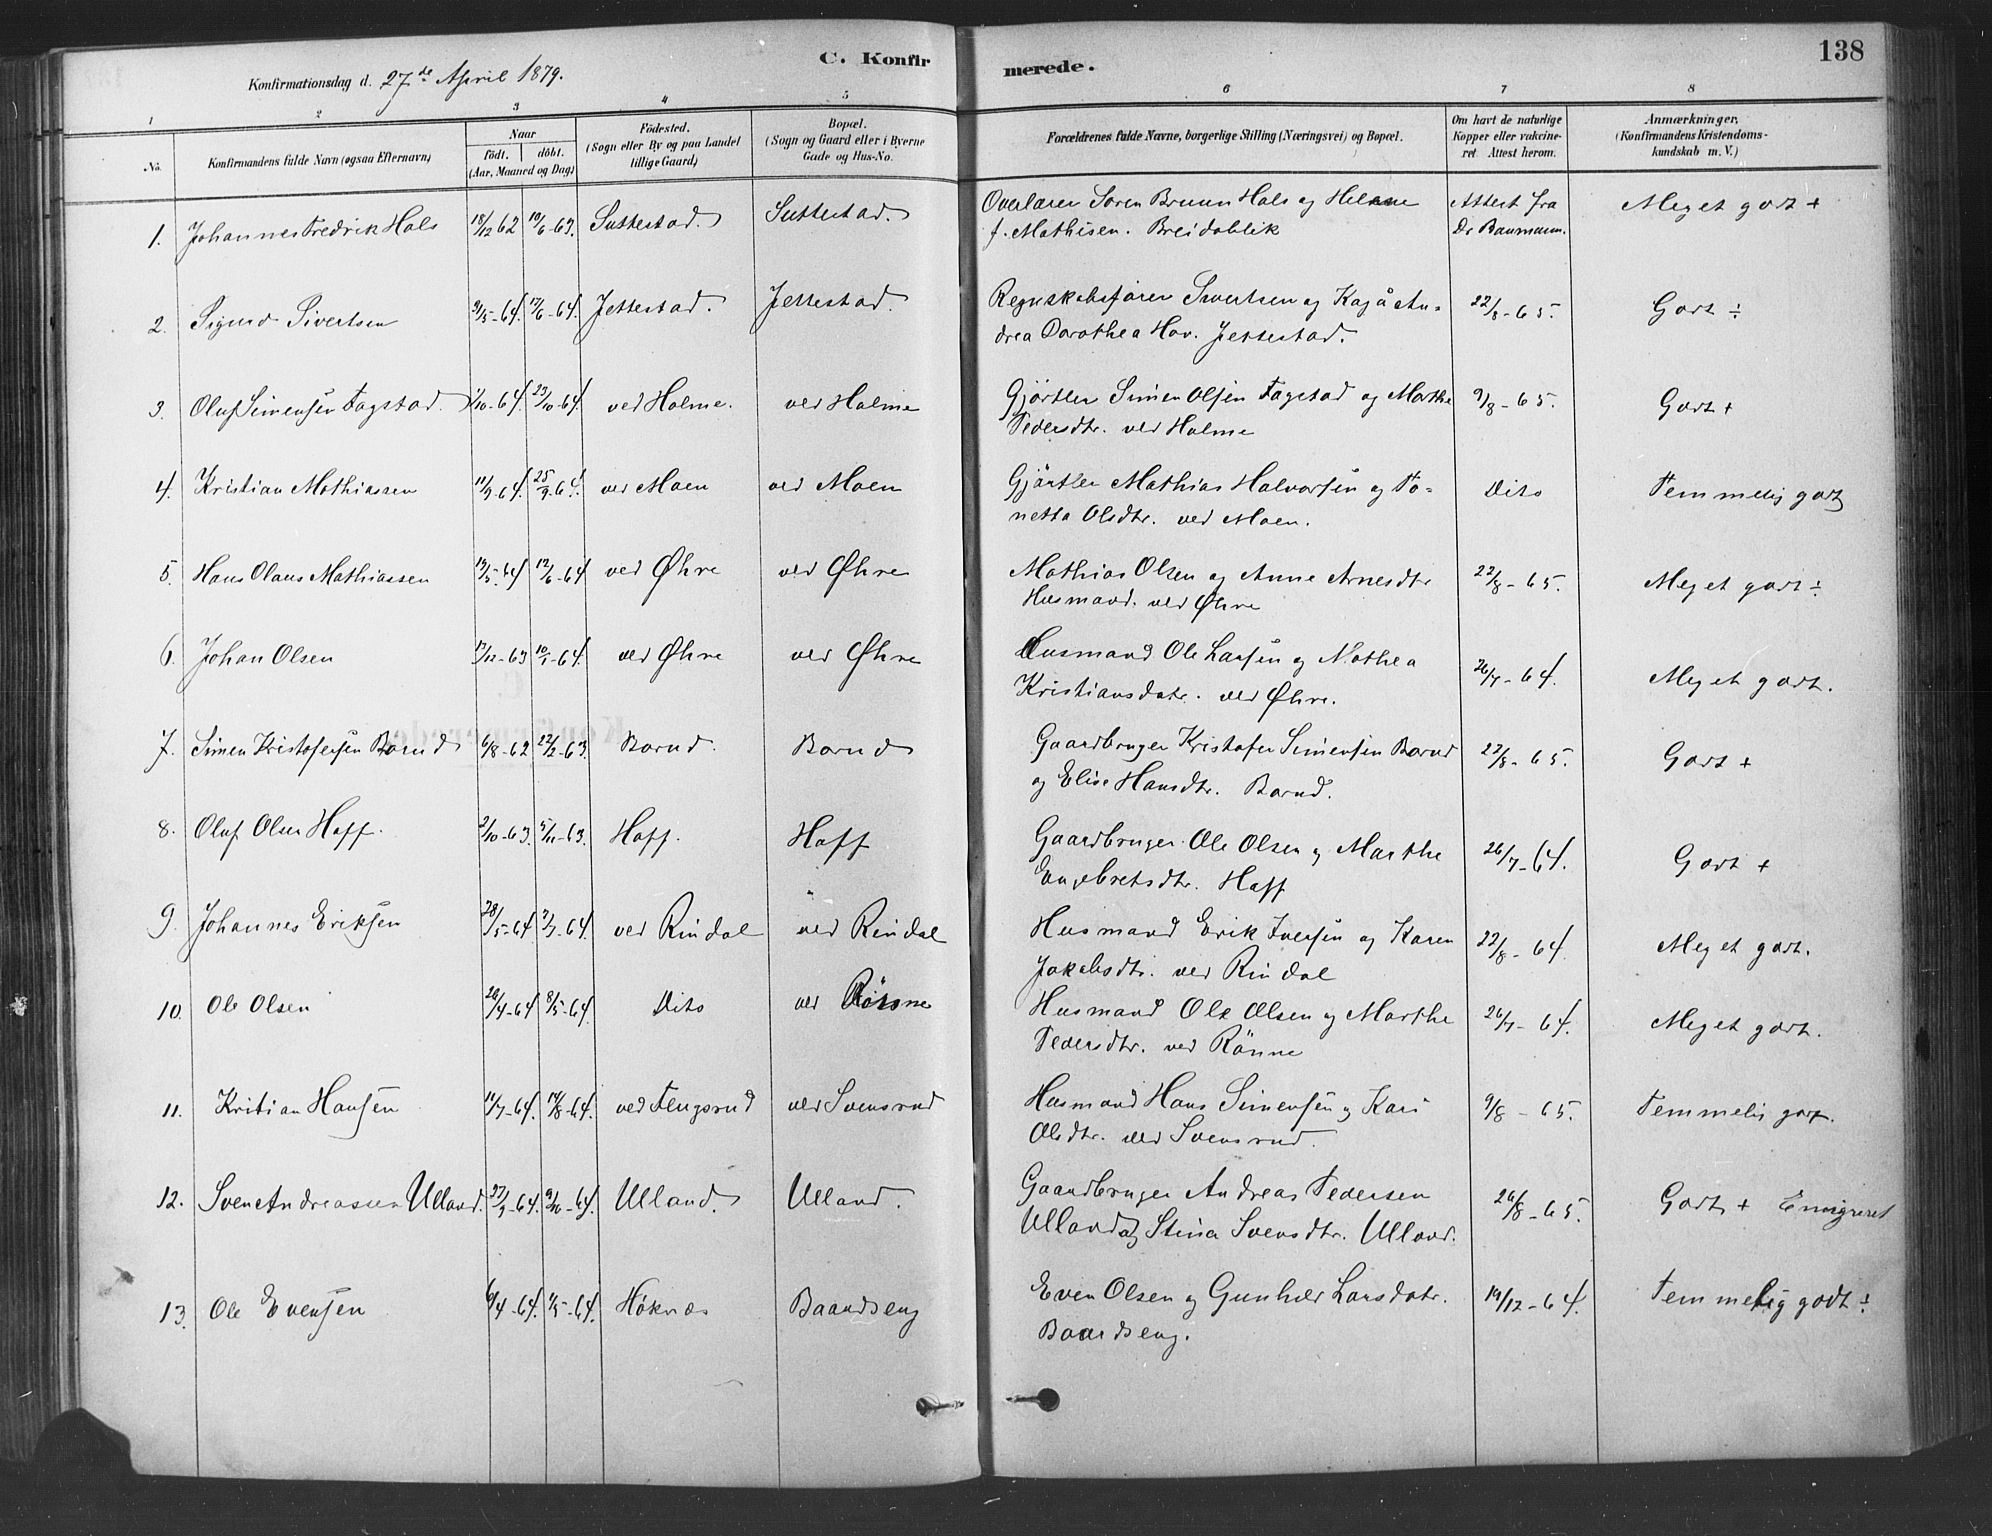 C. Konfirmerede.
138
Konfirmationsdag d. 27de April 1879.
1 2 3 4 5 6 7 8
No.
Konfirmandens fulde Navn (ogsaa Efternavn)
Naar
födt. döbt.
(Aar, Maaned og Dag)
Födested.
(Sogn eller By og paa Landet
tillige Gaard)
Bopæl.
(Sogn og Gaard eller i Byerne
Gade og Hus-No.
Forældrenes fulde Navne, borgerlige Stilling (Næringsvei) og Bopæl.
Om havt de naturlige
Kopper eller vakcine-
ret Attest herom.
Anmærkninger,
(Konfirmandens Kristendoms-
kundskab m. V.)
1. Johannes Fredrik Hals 18/12 62 19/6-63. Suttestad. Suttestad. Overlærer Sören Bruun Hals og Helene Attest fra Meget godt +
f. Mathisen. Breidablik Dr Baumann.
2. Sigurd Sivertsen 9/5-64. 17/6-64. Jettestad. Jettestad. Regnskabsfører Sivertsen og Kaja An= 22/8-65. Godt ÷
drea Dorothea Hov. Jettestad.
3. Oluf Simensen Fagstad. 1/10-64. 23/10-64. ved Holme. ved Holme Gjörtler Simen Olsen Fagstad og Marthe 9/8-65. Godt +
Pedersdtr. ved Holme
4. Kristian Mathiassen 11/9-64. 25/9-64. ved Moen ved Moen Gjörtler Mathias Halvorsen og To= Dito Temmelig godt
netta Olsdtr. ved Moen.
5. Hans Olaus Mathiassen 19/5-64 12/6-64 ved Øhre ved Øhre Mathias Olsen og Anne Arnesdtr 22/8-65. Meget godt ÷
Husmand. ved Øhre
6. Johan Olsen 17/12-63 10/1-64. ved Øhre ved Øhre Husmand Ole Larsen og Mathea 26/7-64. Meget godt.
Kristiansdatr. ved Øhre.
7. Simen Kristofersen Borud 6/8-62 22/2-63. Borud. Borud Gaardbruger Kristofer Simensen Borud 22/8-65. Godt +
og Elise Hansdtr. Borud.
8. Oluf Olsen Hoff. 2/10-63. 5/11-63. Hoff. Hoff Gaardbruger Ole Olsen og Marthe 26/7-64. Godt +
Engebretsdtr. Hoff
9. Johannes Eriksen 28/5-64 3/7-64. ved Rindal ved Rindal Husmand Erik Iversen og Karen 22/8-64. Meget godt.
Jakobsdtr. ved Rindal
10. Ole Olsen 20/4-64 8/5-64. Dito ved Rönne Husmand Ole Olsen og Marthe 26/7-64. Meget godt.
Pedersdtr. ved Rönne
11. Kritian Hansen 11/7-64. 14/8-64. ved Flugsrud ved Svensrud Husmand Hans Simensen og Kari 9/8-65. Temmelig godt.
Olsdtr. ved Svensrud.
12. Sven Andreassen Ulland. 27/9-64. 9/10-64. Ulland. Ulland. Gaardbruger Andreas Pedersen 26/8-65. Godt + Emigreret
Ulland og Stina Svensdtr. Ulland.
13. Ole Evensen 6/4-64. 1/5-64. Höknæs Baardseng Even Olsen og Gunhild Larsdatr. 19/12-64. Temmelig godt ÷
Baardseng.